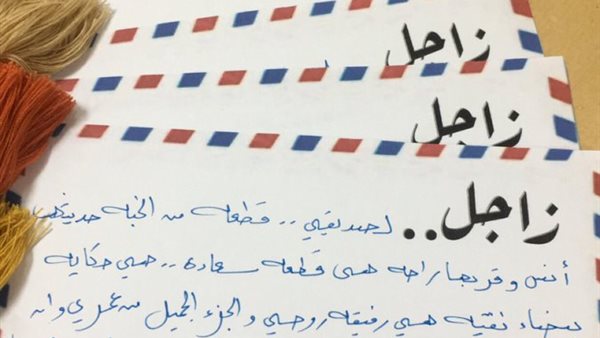 زاجل
زاجل
زاجل..
لصديقتي .. قطعه من الجنه حديثها
أنس وقربها راحه هي قطعه سعاده .. هي حكايه
بيضاء نقيه هي رفيقه روحي و الجزء الجميل من عمري وانه